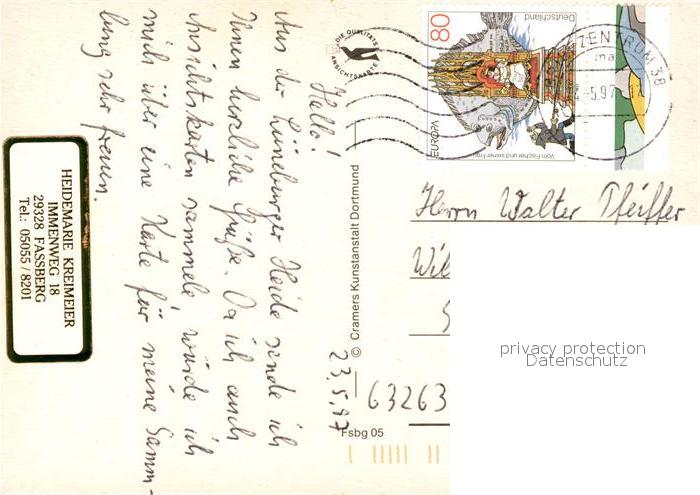 Hello!
Aus der Lüneburger Heide sende ich
Ihnen herzliche Grüße. Da ich auch
Ansichtskarten sammele, würde ich
mich über eine Karte für meine Samm-
lung sehr freuen.
23.5.97
HEIDEMARIE KREIMEIER
IMMENWEG 18
29328 FASSBERG
Tel.: 05055 / 8201
DIE QUALITÄTS
ANSICHTSKARTE
© Cramers Kunstanstalt Dortmund
Fsbg 05
80
Deutschland
EUROPA
Vom Fischer und seiner Frau
ZENTRUM 38
ma
-5.97
Herrn Walter Pfeiffer
Wil
63263
privacy protection
Datenschutz